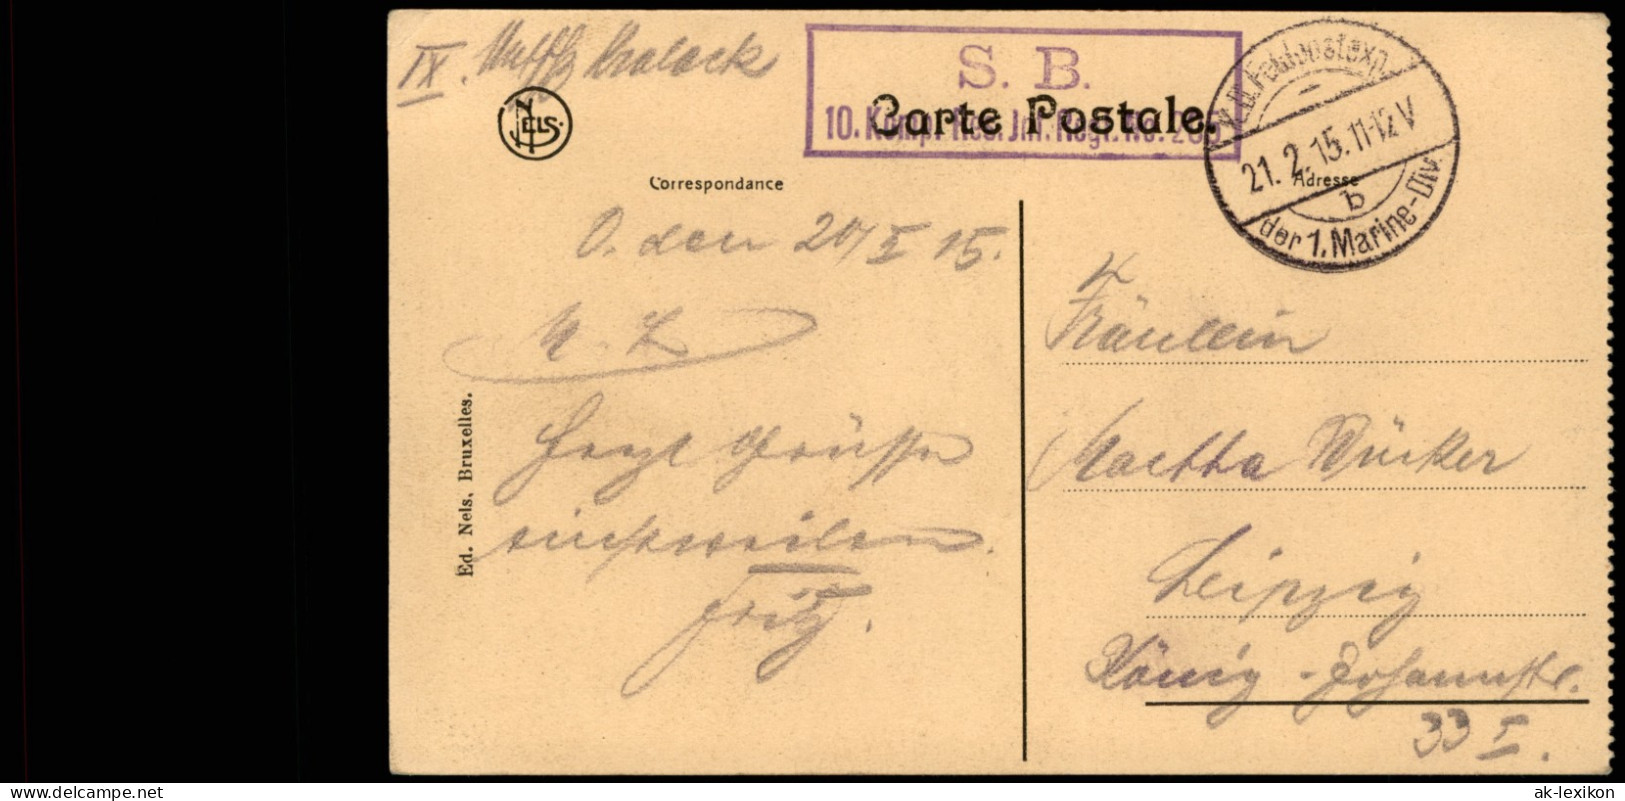 IX.
NELS.
S. B.
Carte Postale.
10. Komp. Res. Inf. Regt. No. 20
K.D. Feldpostexp.
21. 2. 15. 11-12 V
b
der 1. Marine-Div.
Correspondance
Adresse
O. den 20/II 15.
M. L.
Herzl Grüsse
einstweilen.
Fritz.
Fräulein
Martha Wücker
Leipzig
König-Johannstr.
33 I.
Ed. Nels, Bruxelles.
hier-luxembourg.com
ak-lexikon